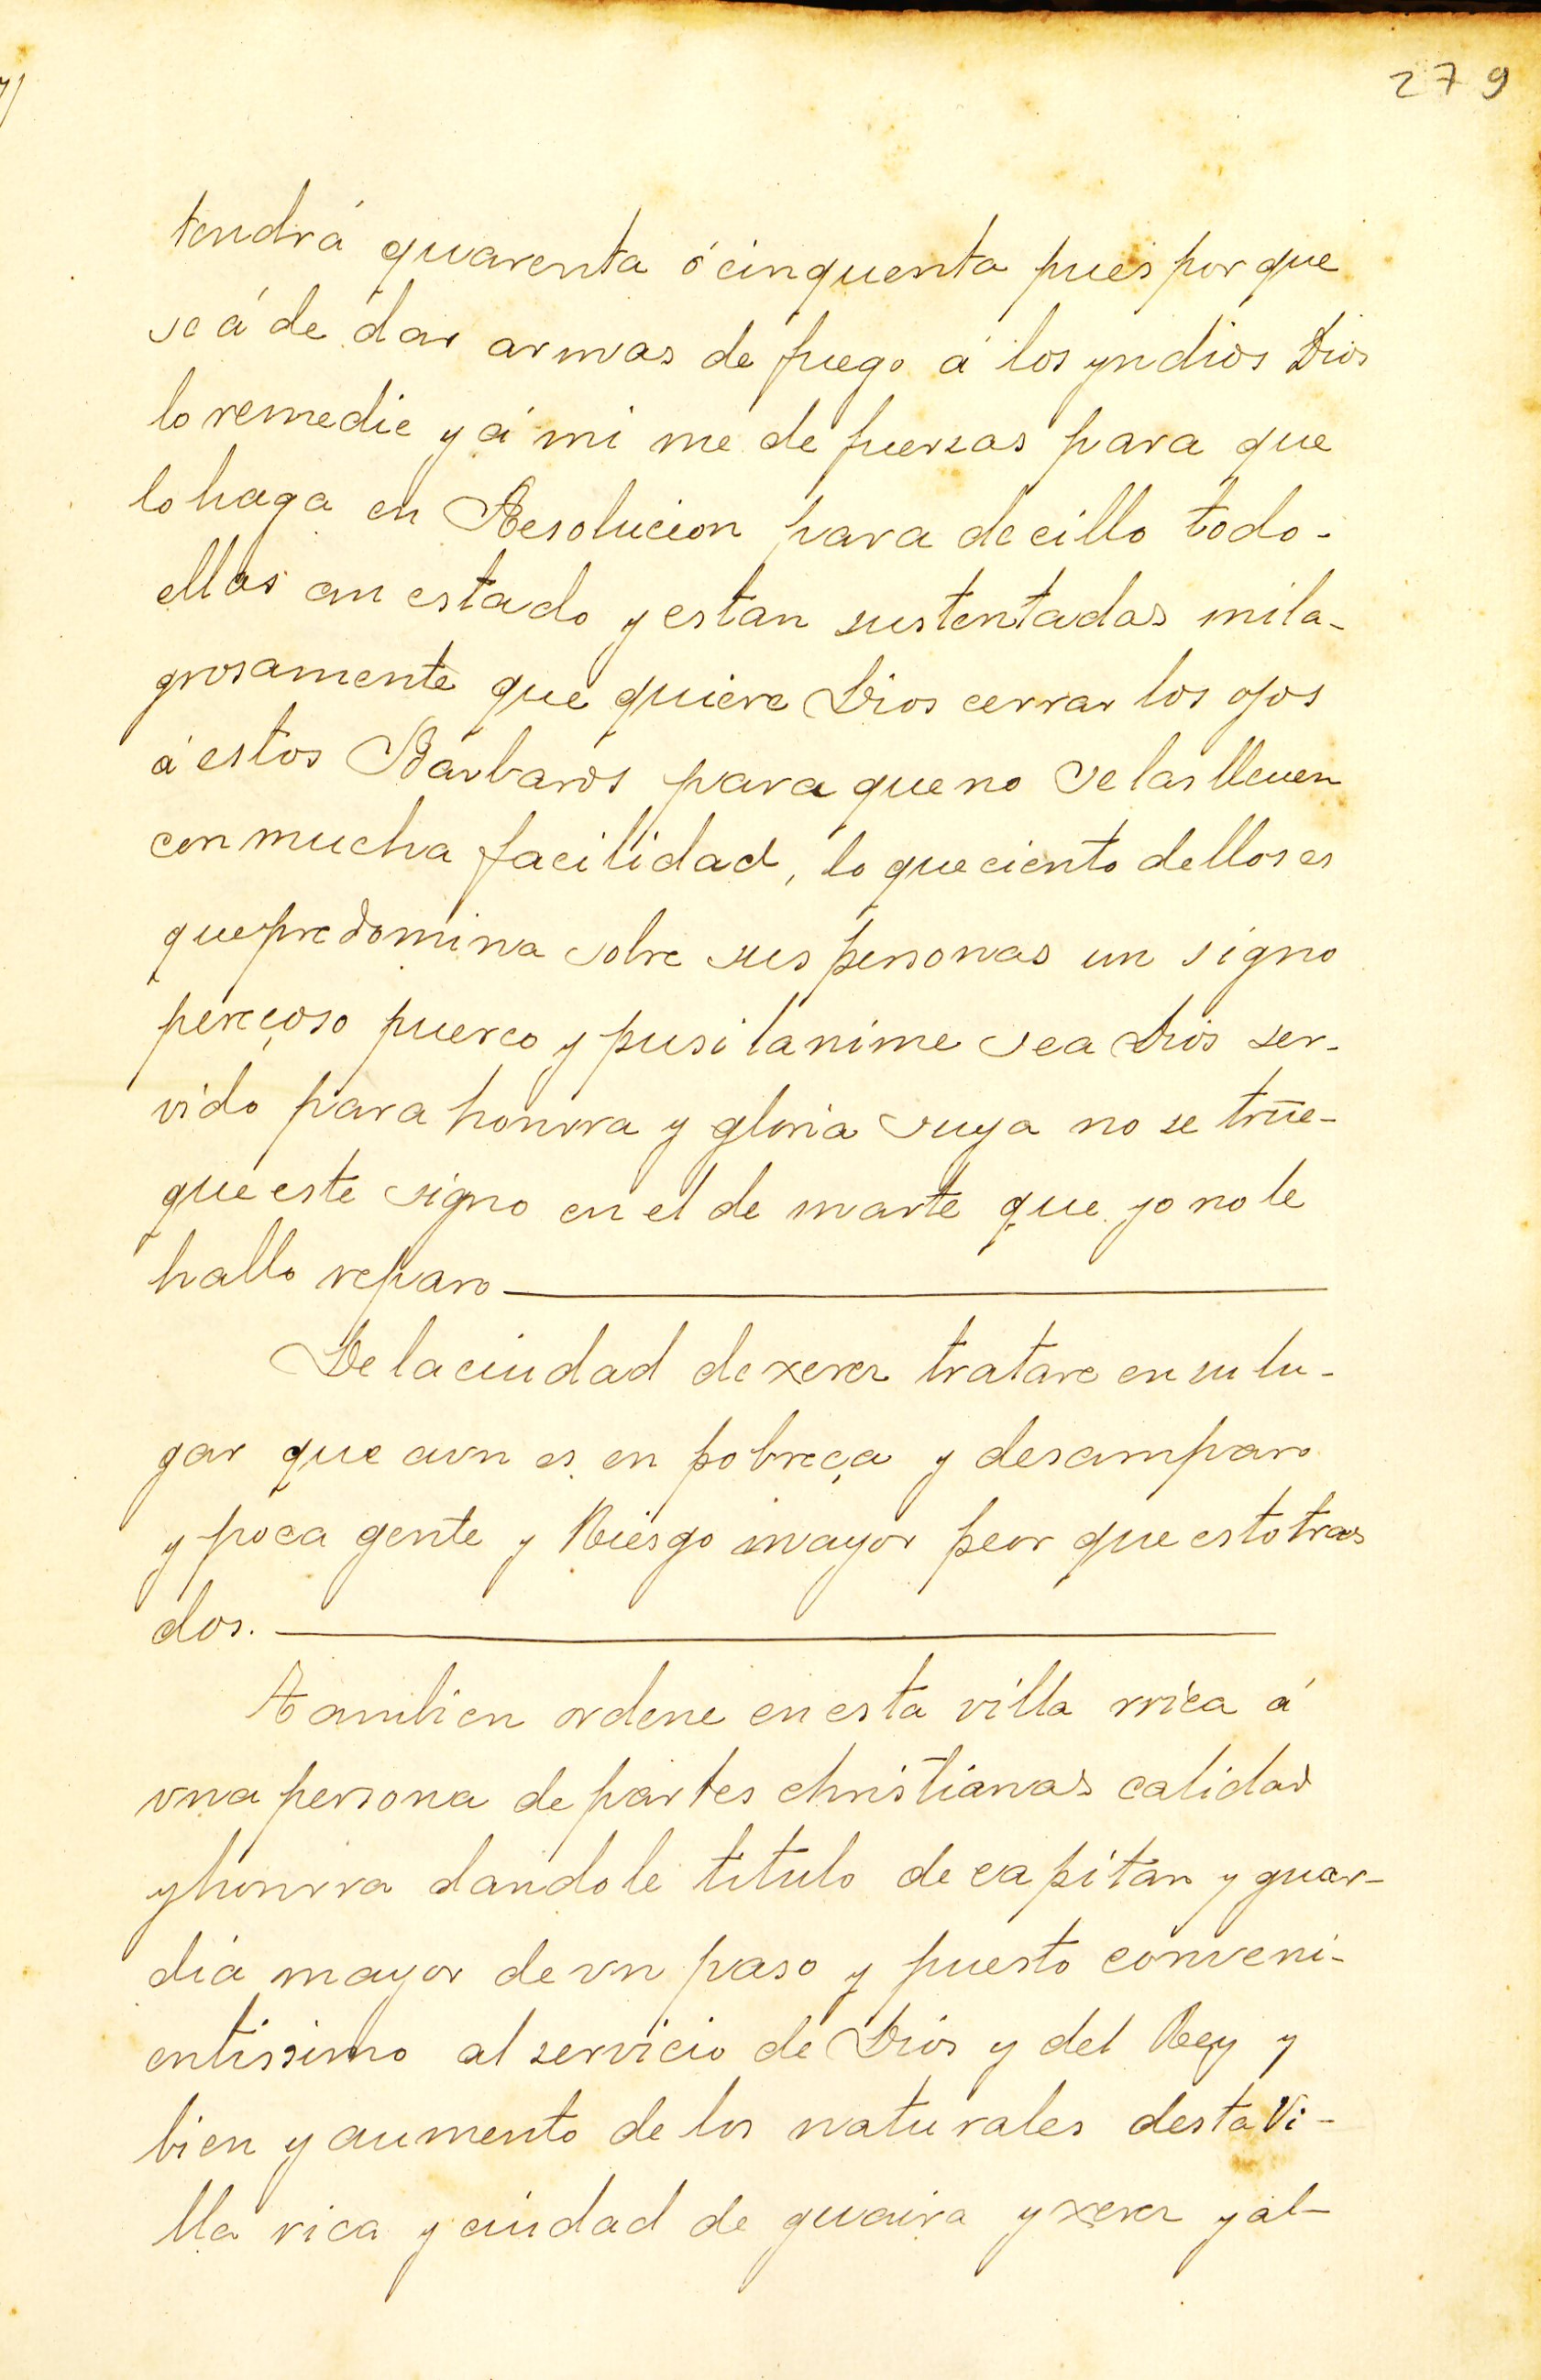 279
tendrá quarenta ó cinquenta pues por que
se á de dar armas de fuego á los yndios Dios
lo remedie y á mi me de fuersas para que
lo haga en Resolucion para decillo todo.
ellas an estado y estan sustentadas mila-
grosamente que quiere Dios cerrar los ojos
á estos Bárbaros para que no se las lleuen
con mucha facilidad, lo que ciento dellos es
que predomina sobre sus personas un signo
pereçoso puerco y pusilanime sea Dios ser-
vido para honrra y gloria suya no se true-
que este signo en el de marte que yo no le
hallo reparo
De la ciudad de xerez tratare en su lu-
gar que avn es en pobreça y desamparo
y poca gente y Riesgo mayor peor que estotras
dos.
Tambien ordene en esta villa rrica á
vna persona de partes christianas calidad
y honrra dandole titulo de capitan y guar-
dia mayor de vn paso y puesto conveni-
entissimo al servicio de Dios y del Rey y
bien y aumento de los naturales desta Vi-
lla rica y ciudad de guaira y xerez y al-